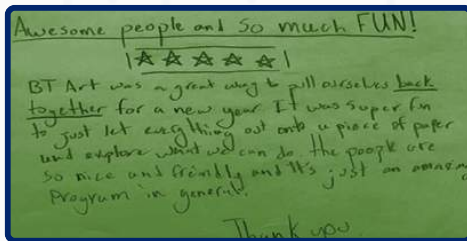 Awesome people and so much FUN!
|☆☆☆☆☆|
BT Art was a great way to pull ourselves back
together for a new year It was super fun
to just let everything out onto a piece of paper
and explore what we can do the people are
so nice and friendly and It's just an amazing
Program in general.
Thank you